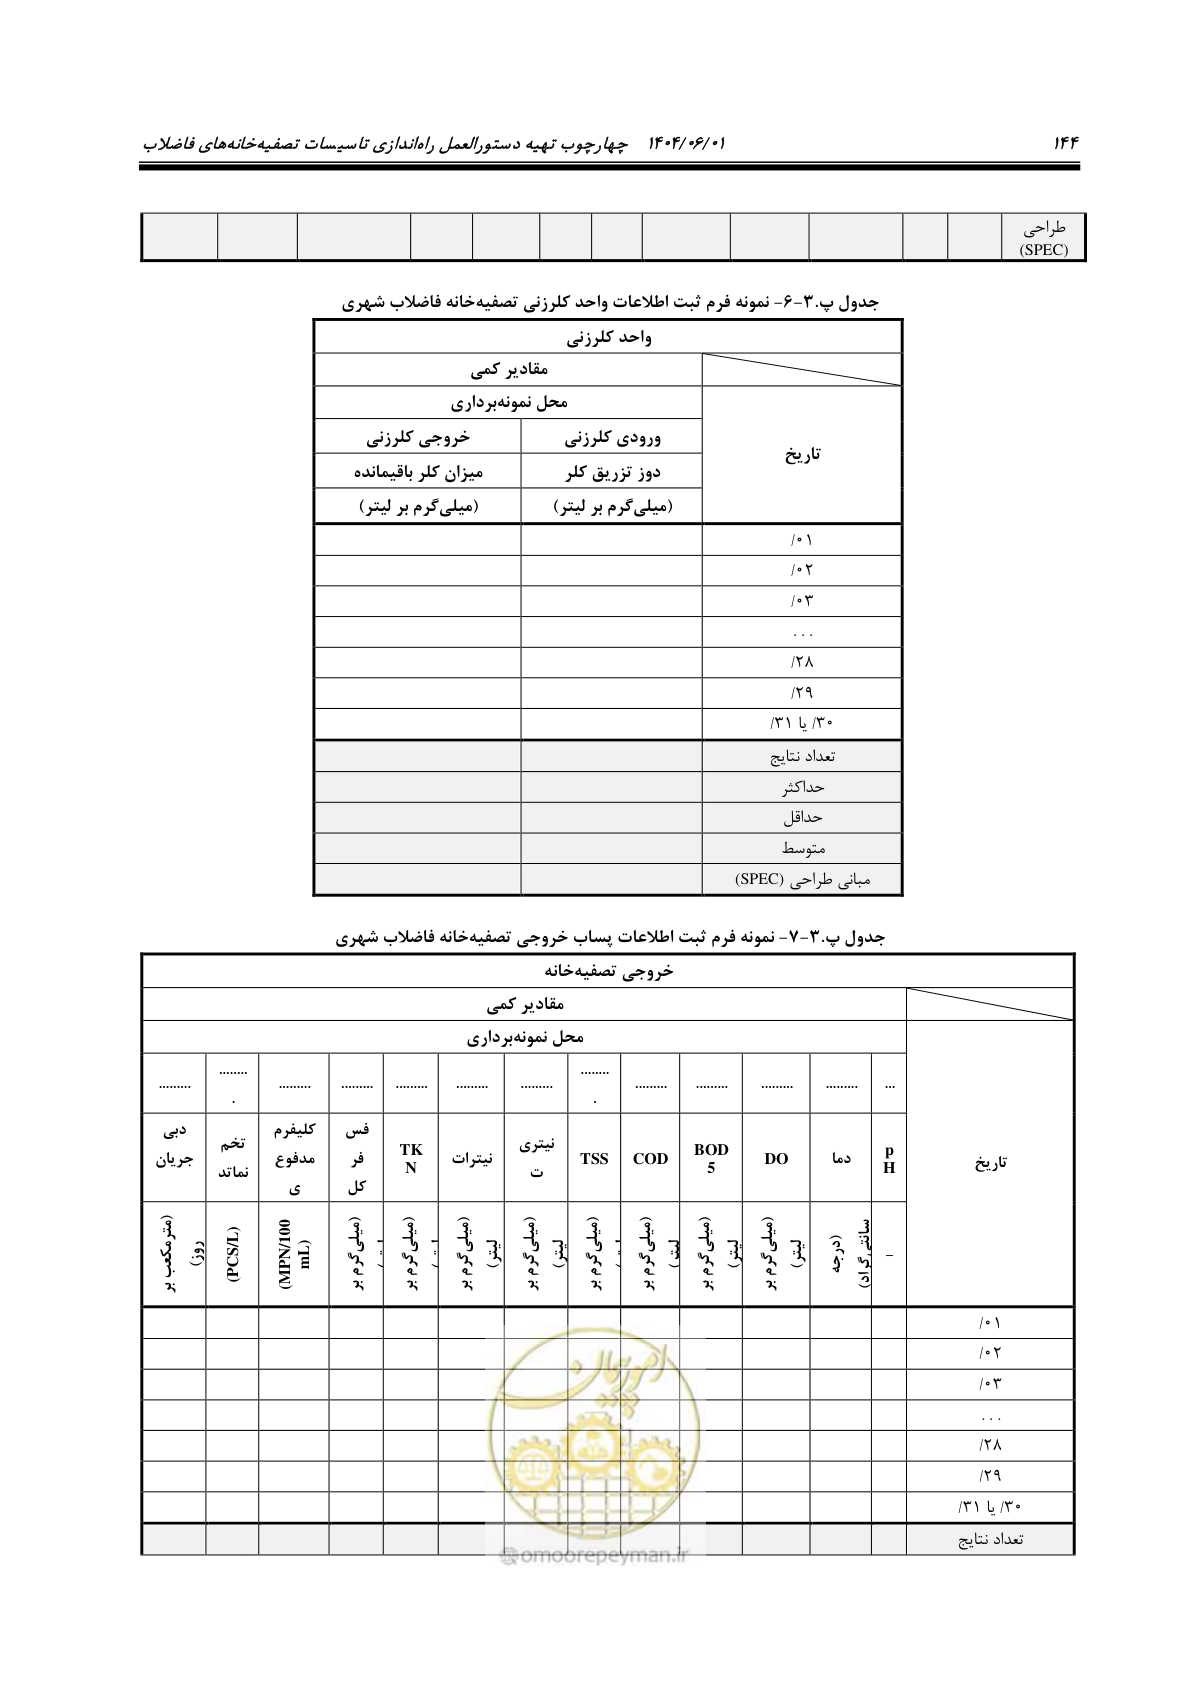 ۱۴۴ ۱۴۰۴/۰۶/۰۱ چهارچوب تهیه دستورالعمل راه‌اندازی تاسیسات تصفیه‌خانه‌های فاضلاب
طراحی
(SPEC)
جدول پ.۳-۶- نمونه فرم ثبت اطلاعات واحد کلرزنی تصفیه‌خانه فاضلاب شهری
واحد کلرزنی
مقادیر کمی
محل نمونه‌برداری
تاریخ
ورودی کلرزنی خروجی کلرزنی
دوز تزریق کلر میزان کلر باقیمانده
(میلی‌گرم بر لیتر) (میلی‌گرم بر لیتر)
/۰۱
/۰۲
/۰۳
...
/۲۸
/۲۹
/۳۰ یا /۳۱
تعداد نتایج
حداکثر
حداقل
متوسط
مبانی طراحی (SPEC)
جدول پ.۳-۷- نمونه فرم ثبت اطلاعات پساب خروجی تصفیه‌خانه فاضلاب شهری
خروجی تصفیه‌خانه
مقادیر کمی
محل نمونه‌برداری
تاریخ
... ......... ......... ......... ......... ......... ......... ......... ......... ......... ......... ......... .........
p
H
دما
DO
BOD
5
COD
TSS
نیتری
ت
نیترات
TK
N
فس
فر
کل
کلیفرم
مدفوع
ی
تخم
نماتد
دبی
جریان
–
(درجه
سانتی‌گراد)
(میلی‌گرم بر
لیتر)
(میلی‌گرم بر
لیتر)
(میلی‌گرم بر
لیتر)
(میلی‌گرم بر
(میلی‌گرم بر
لیتر)
(میلی‌گرم بر
لیتر)
(میلی‌گرم بر
(میلی‌گرم بر
(MPN/100
mL)
(PCS/L)
(مترمکعب بر
روز)
/۰۱
/۰۲
/۰۳
...
/۲۸
/۲۹
/۳۰ یا /۳۱
تعداد نتایج
امور پیمان
@omoorepeyman.ir